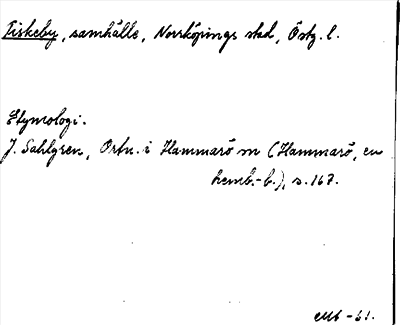 Fiskeby, samhälle, Norrköpings stad, Östg. l.
Etymologi.
J. Sahlgren, Ortn. i Hammarö sn (Hammarö, en
hemb.-b.), s. 167.
-61.